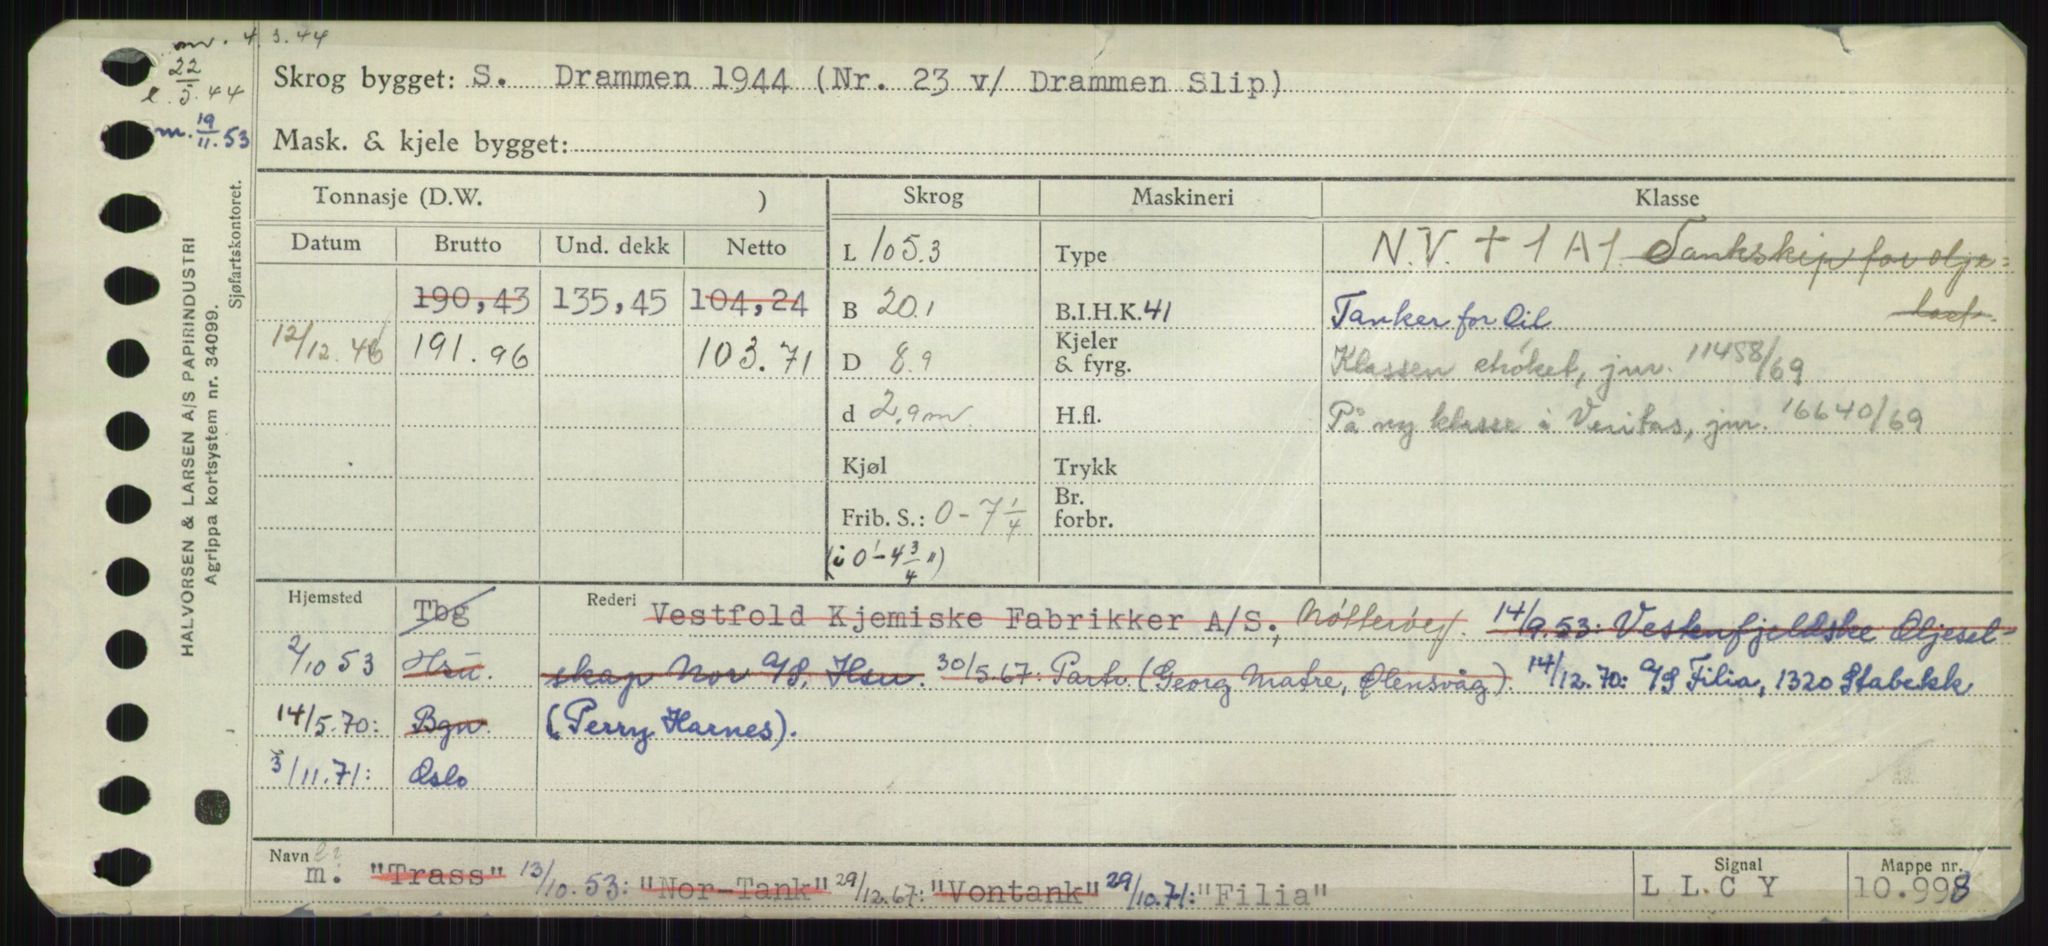 mv. 4.3.44
22
e. 5.44
m. 19/11.53
Skrog bygget: S. Drammen 1944 (Nr. 23 v/ Drammen Slip)
Mask. & kjele bygget:
HALVORSEN & LARSEN A/S PAPIRINDUSTRI
Agrippa kortsystem nr. 34099.
Sjøfartskontoret.
Tonnasje (D.W. ) Skrog Maskineri Klasse
Datum Brutto Und. dekk Netto L 105.3 Type N.V. + 1 A 1. Tankskip for olje=
190,43 135,45 104,24 B 20.1 B.I.H.K. 41 Tanker for Oil last.
12/12.46 191.96 103.71 D 8.9 Kjeler & fyrg. Klassen strøket, jnr. 11458/69
d 2,9m H.fl. På ny klasse i Veritas, jnr. 16640/69
Kjøl Trykk
Frib. S.: 0-7 1/4 Br. forbr.
(i 0'-4 3/4")
Hjemsted Tbg Rederi Vestfold Kjemiske Fabrikker A/S., Nøtterøy. 14/9.53: Vestenfjeldske Oljesel-
2/10 53 Hsu. skap Nor A/S, Hsu. 30/5.67: Partr. (Georg Matre, Ølensvåg) 14/12.70: A/S Filia, 1320 Stabekk
14/5.70: Bgn. (Perry Harnes).
3/11.71: Oslo
Navn m. "Trass" 13/10.53: "Nor-Tank" 29/12.67: "Vontank" 29/10.71: "Filia" Signal L L C Y Mappe nr. 10.998